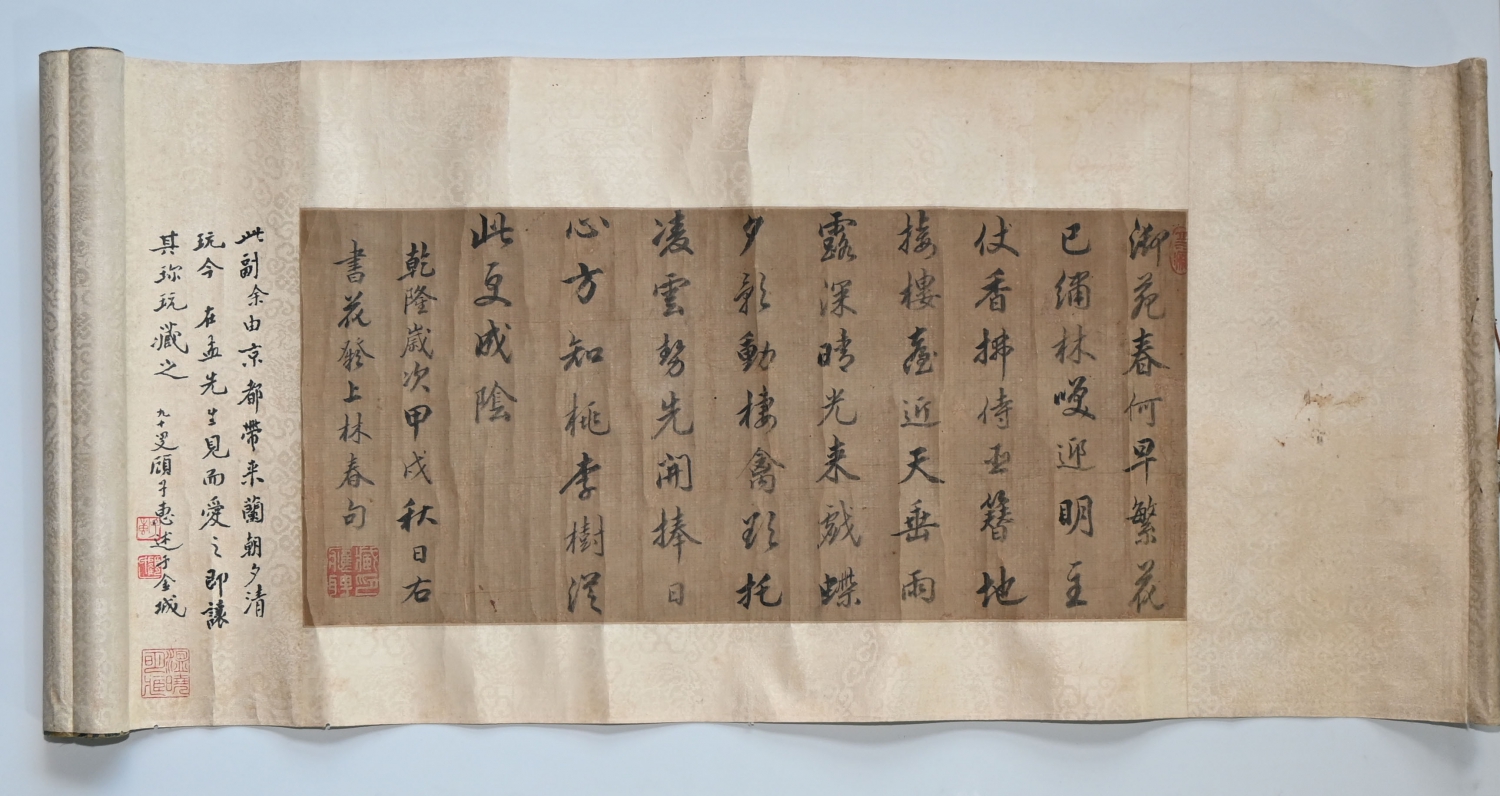 御苑春何早繁花
已繡林咲迎明主
仗香拂侍臣簪地
接樓臺近天垂雨
露深晴光来戏蝶
夕影動棲禽欲托
凌雲勢先開捧日
心方知桃李樹從
此更成陰
乾隆歲次甲戌秋日右
書花發上林春句
此副余由京都帶来蘭朝夕清
玩今 在孟先生見而愛之即讓
其珎玩藏之
九十叟頋子惠述于金城